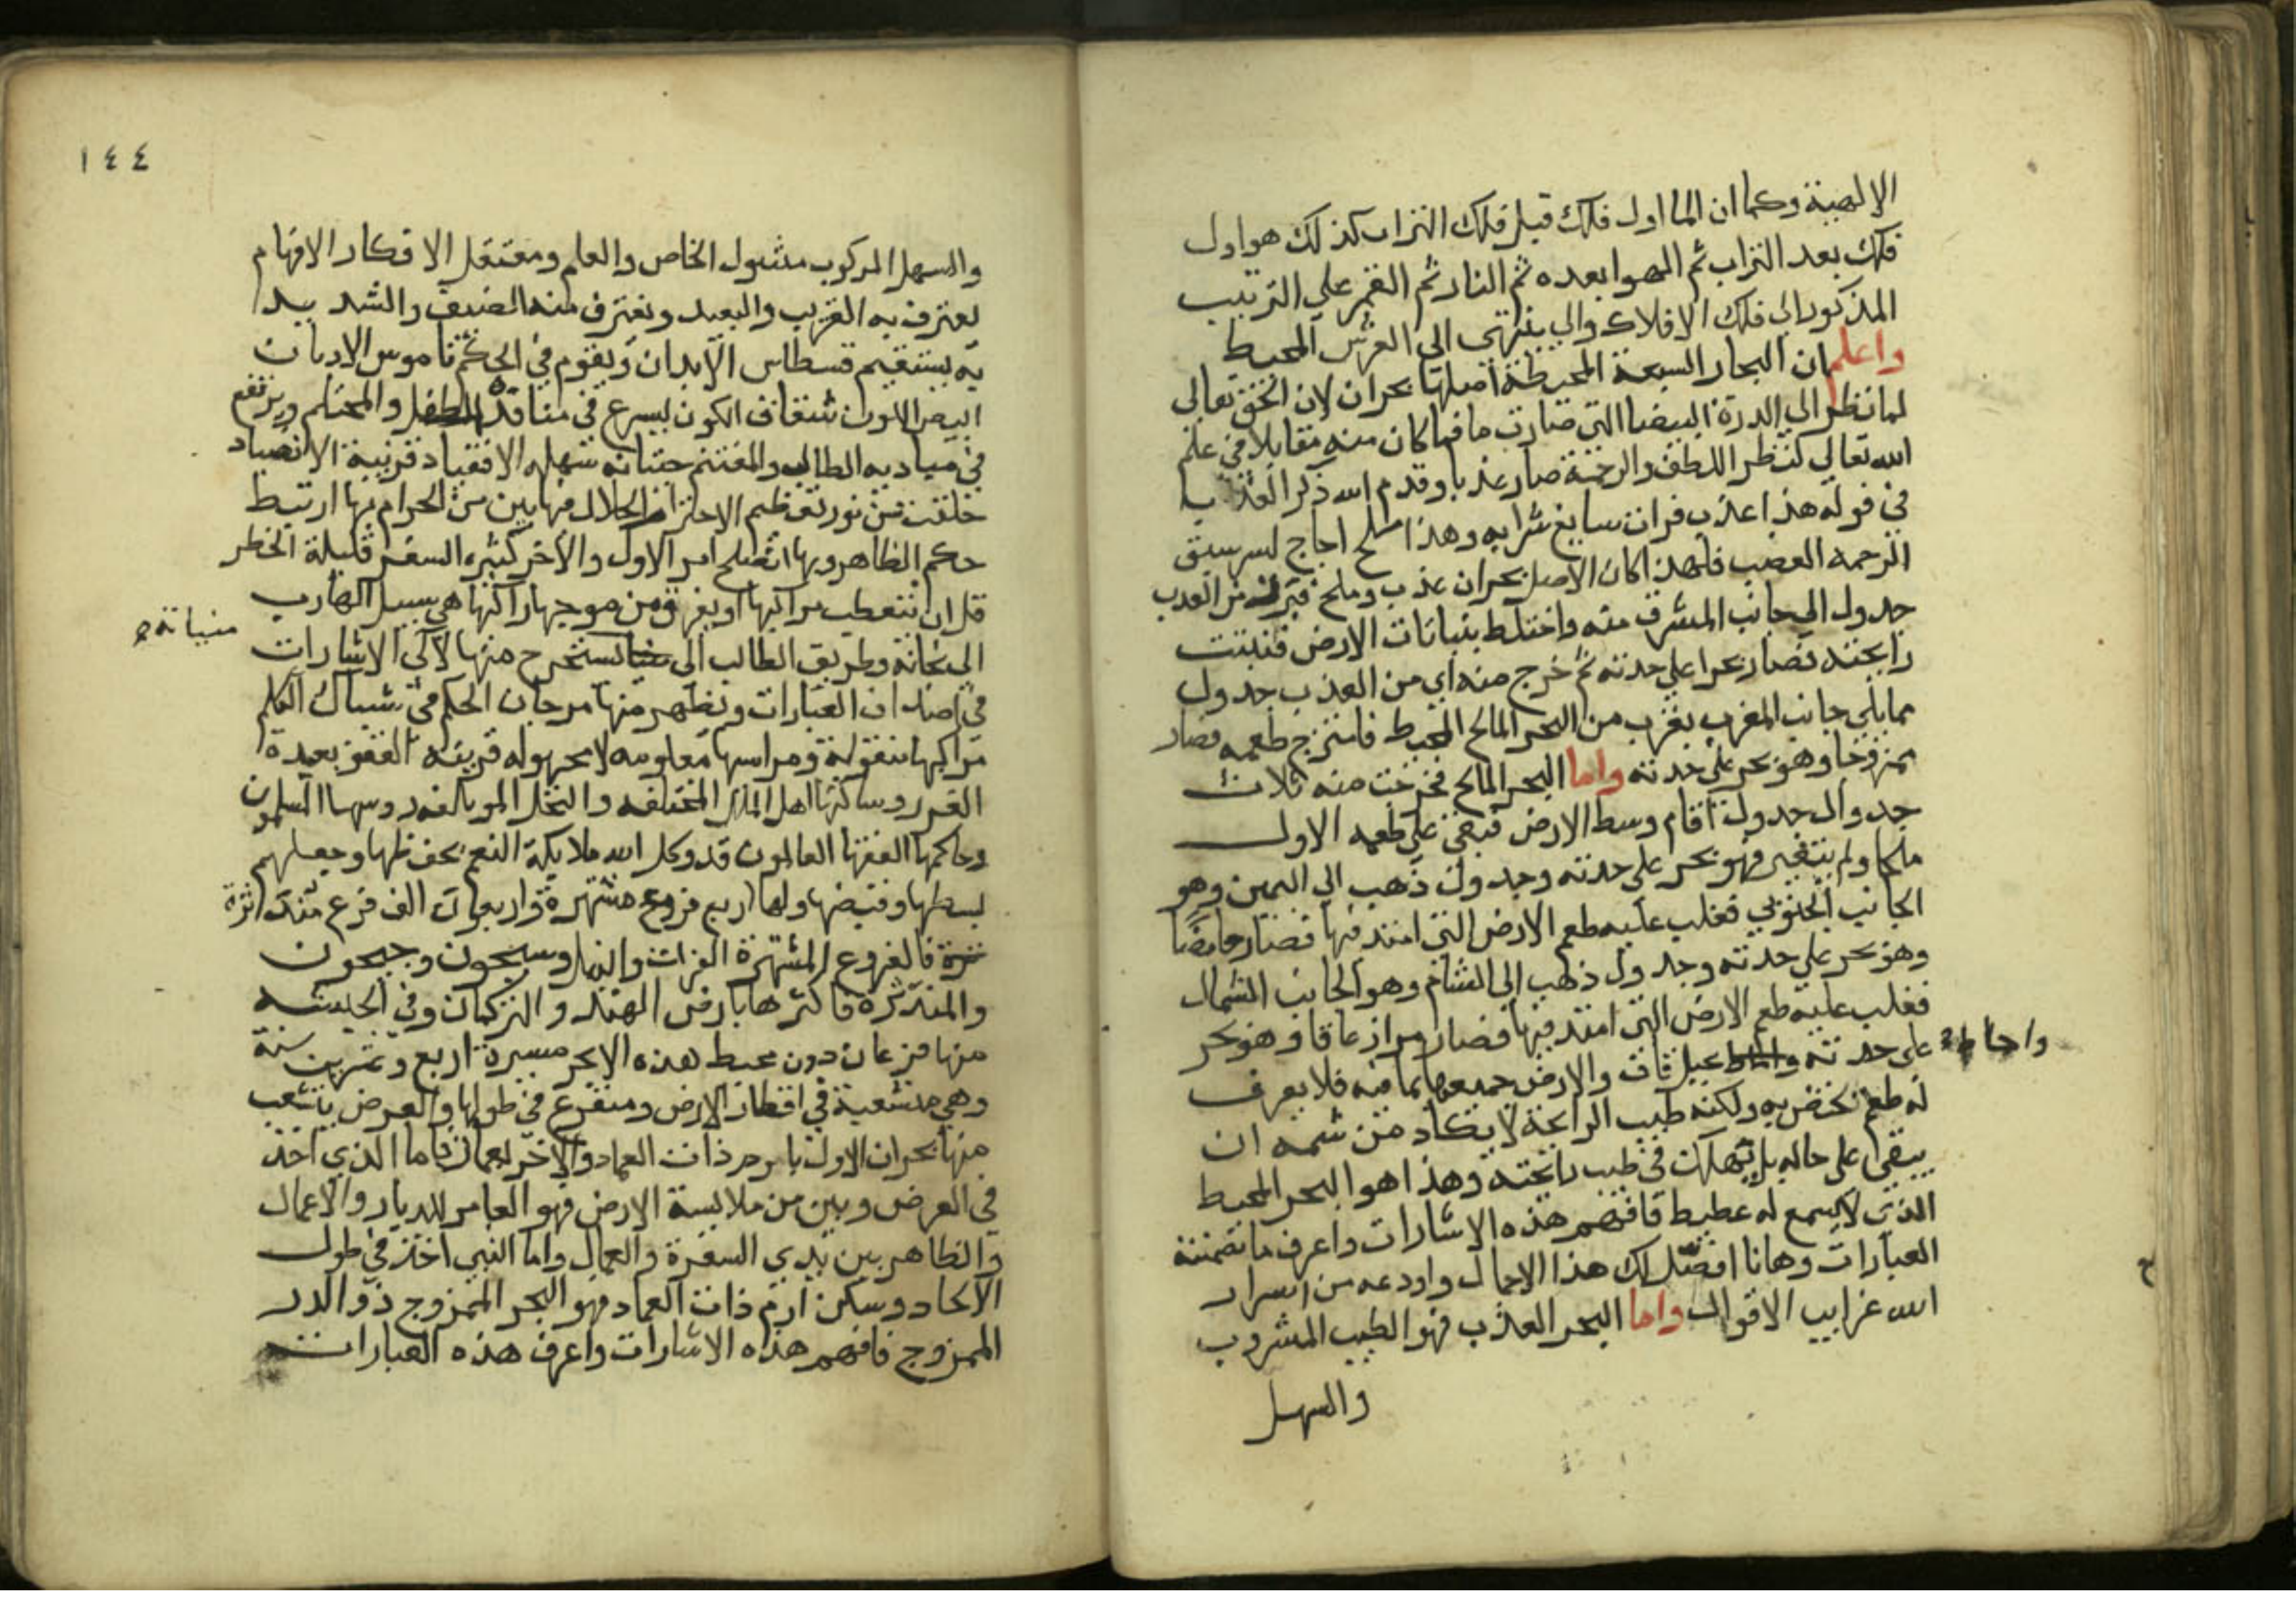 الالهية وكما ان الما اول فلك قبل فلك التراب كذلك هو اول
فلك بعد التراب ثم الهوا بعده ثم النار ثم القمر علي الترتيب
المذكور الي فلك الافلاك والي ينتهي الي العرش المحيط
واعلم ان البحار السبعة المحيطة اصلها بحران لان الحق تعالي
لما نظر الي الدرة البيضا التي صارت ما فما كان منه مقابلا في علم
الله تعالي لنظر اللطف والرحمة صار عذبا وقدم الله ذكر العذب
في قوله هذا عذب فرات سايغ شرابه وهذا ملح اجاج لسر سبق
الرحمه الغضب فلهذا كان الاصل بحران عذب وملح فبرز من العذب
جدول الي جانب المشرق منه واختلط بنباتات الارض فنبتت
رايحته فصار بحرا علي حدته ثم خرج منه اي من العذب جدول
مما يلي جانب المغرب بقرب من البحر المالح المحيط فامتزج طعمه فصار
ممزوجا وهو بحر علي حدته واما البحر المالح فخرجت منه ثلاث
جداول جدول اقام وسط الارض فبقي علي طعمه الاول
ملحا ولم يتغير فهو بحر علي حدته وجدول ذهب الي اليمين وهو
الجانب الجنوبي فغلب عليه طعم الارض التي امتد فيها فصار حامضا
وهو بحر علي حدته وجدول ذهب الي الشام وهو الجانب الشمال
فغلب عليه طعم الارض التي امتد فيها فصار مرا زعاقا وهو بحر
علي حدته جبل قاف والارض جميعها بما فيه فلا يعرف
واحاط
له طعم يختص به ولكنه طيب الرايحة لا يكاد من شمه ان
يبقي علي حاله بل يهلك في طيب رايحته وهذا هو البحر المحيط
الذي لا يسمع له غطيط فافهم هذه الاشارات واعرف ما تضمنته
العبارات وها انا افصل لك هذا الاجمال واودعه من اسرار
الله غرايب الاقوال واما البحر العذب فهو الطيب المشروب
والسهل
١٤٤
والسهل المركوب مشمول الخاص والعام ومعتقل الافكار الافهام
يغترف به القريب والبعيد ويغترف منه الضعيف والشديد
به يستقيم قسطاس الابدان ويقوم في الحكم ناموس الاديان
ابيض اللون شفاف الكون يسرع في منافذه الطفل والمحتلم ويرتفع
في مياديه الطالب والمغتنم حيتانه سهله الانقياد قريبة الاصطياد
خلقت من نور تعظيم الاحترام الحلال فيها بين من الحرام بها ارتبط
حكم الظاهر وبها اتصلح امر الاول والاخر كثيره السفر قليلة الخطر
قل ان تتعطب مراكبها او يغرق من موجها راكبها هي سبيل الهارب
الي نجاته وطريق الطالب الي يستخرج منها لالي الاشارات
في اصداف العبارات وتظهر منها مرجان الحكم في شباك الكلم
مراكبها منقولة ومراسيها معلومه لا مجهوله قريبة القعر بعيدة
الغرر وساكنها اهل الملل المختلفه والنحل الموتالفه روسها المسلمون
وحاكمها الفقها العاملون قد وكل الله ملايكة النعم بحفظها وجعلهم
بسطها وقبضها ولها اربع فروع مشتهرة واربعون الف فرع مندثرة
فالفروع المشتهرة الفرات والنيل وسيحون وجيحون
والمندثره فاكثرها بارض الهند والتركمان وفي الحبشه
منها فرعان دون محيط هذه الابحر مسيرة اربع وعشرين سنة
وهي متشعبة في اقطار الارض ومتفرع في طولها والعرض يتشعب
منها بحران الاول بارم ذات العماد والاخر بعمان فاما الذي اخذ
في العرض وبين من ملابسة الارض فهو العامر للديار والاعمال
والظاهر بين يدي السفرة والعمال واما الذي اخذ في طول
الالحاد وسكن ارم ذات العماد فهو البحر الممزوج ذو الدر
الممزوج فافهم هذه الاشارات واعرف هذه العبارات